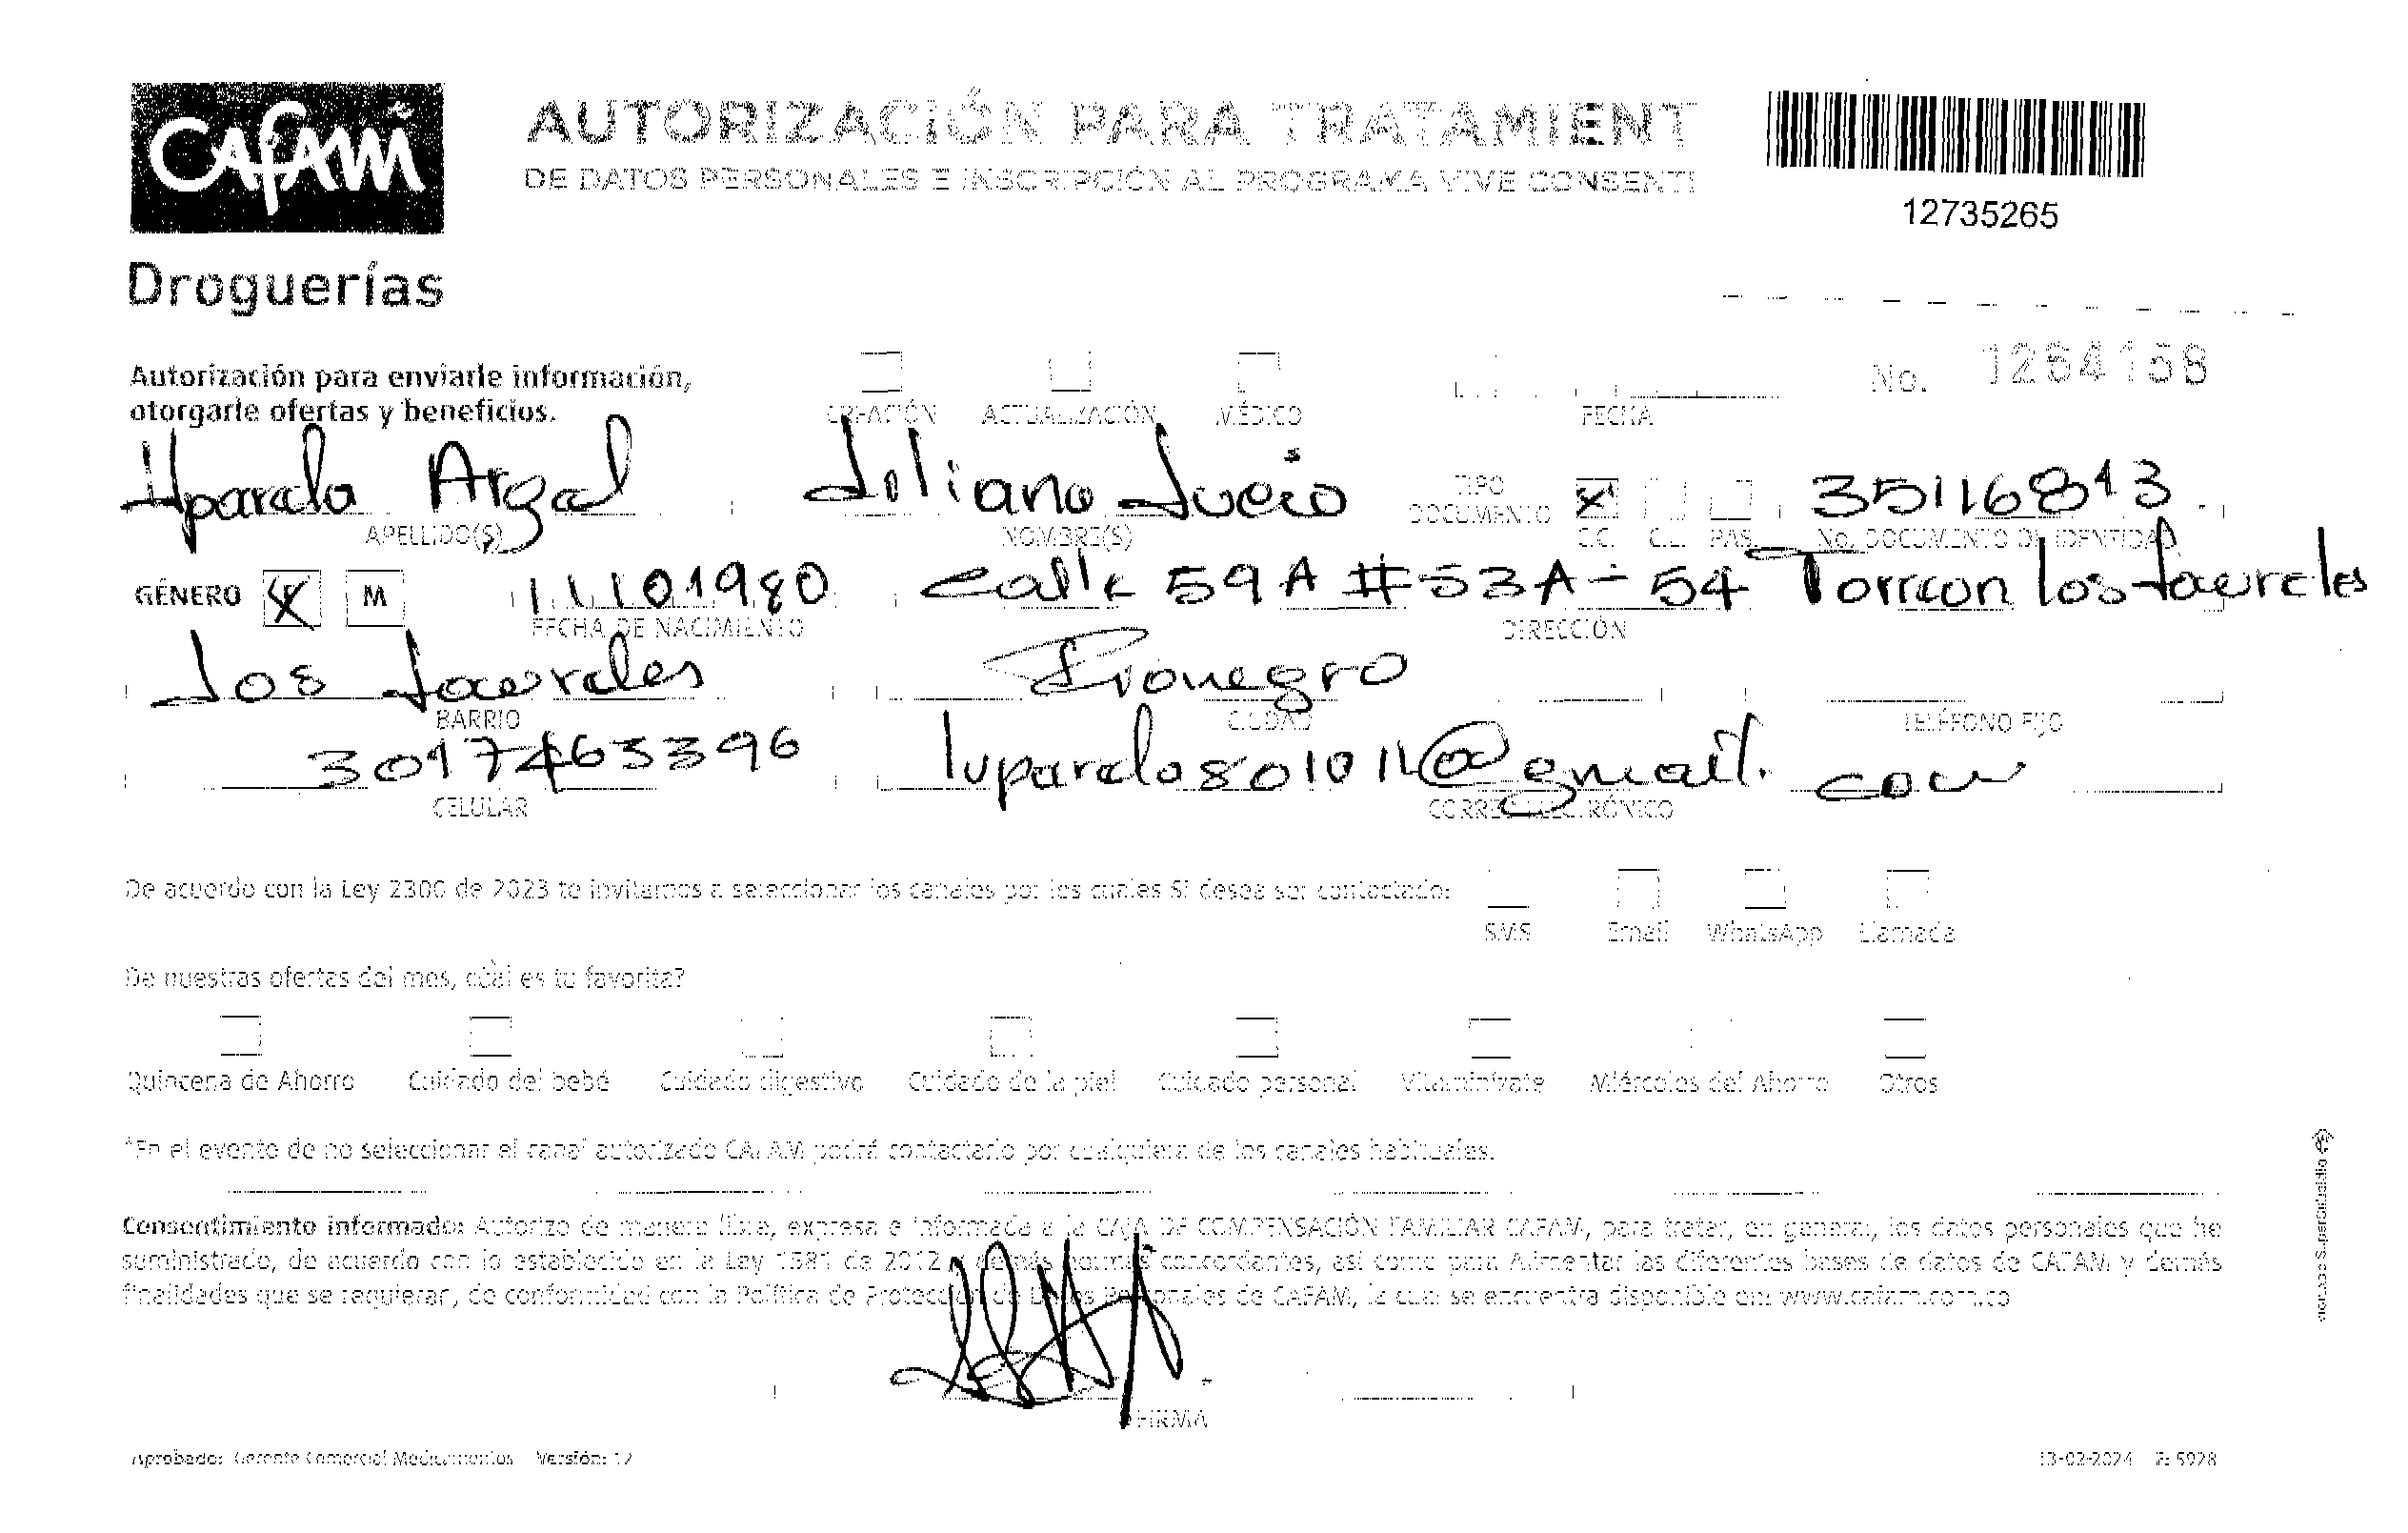 Cafam
AUTORIZACIÓN PARA TRATAMIENT
DE DATOS PERSONALES E INSCRIPCIÓN AL PROGRAMA VIVE CONSENTI
12735265
Droguerías
Autorización para enviarle información,
otorgarle ofertas y beneficios.
CREACIÓN ACTUALIZACIÓN MÉDICO FECHA No. 1264158
Uparela Argal Liliana Lucia TIPO DOCUMENTO X 35116813
APELLIDO(S) NOMBRE(S) C.C. C.E. PAS. No. DOCUMENTO DE IDENTIDAD
GÉNERO X M 11101980 calle 59A #53A-54 Torreon los laureles
FECHA DE NACIMIENTO DIRECCIÓN
Los Laureles Rionegro
BARRIO CIUDAD TELÉFONO FIJO
3017463396 luparela801011@gmail.com
CELULAR CORREO ELECTRÓNICO
De acuerdo con la Ley 2300 de 2023 te invitamos a seleccionar los canales por los cuales SI desea ser contactado:
SMS Email WhatsApp Llamada
De nuestras ofertas del mes, cúal es tu favorita?
Quincena de Ahorro Cuidado del bebé Cuidado digestivo Cuidado de la piel Cuidado personal Vitaminívate Miércoles del Ahorro Otros
*En el evento de no seleccionar el canal autorizado CAFAM podrá contactarlo por cualquiera de los canales habituales.
Consentimiento informado: Autorizo de manera libre, expresa e informada a la CAJA DE COMPENSACIÓN FAMILIAR CAFAM, para tratar, en general, los datos personales que he
suministrado, de acuerdo con lo establecido en la Ley 1581 de 2012 y demás normas concordantes, así como para Alimentar las diferentes bases de datos de CAFAM y demás
finalidades que se requieran, de conformidad con la Política de Protección de Datos Personales de CAFAM, la cual se encuentra disponible en: www.cafam.com.co
FIRMA
Aprobado: Gerente Comercial Medicamentos Versión: 12
13-02-2024 Z: 5928
VIGILADO Supersubsidio